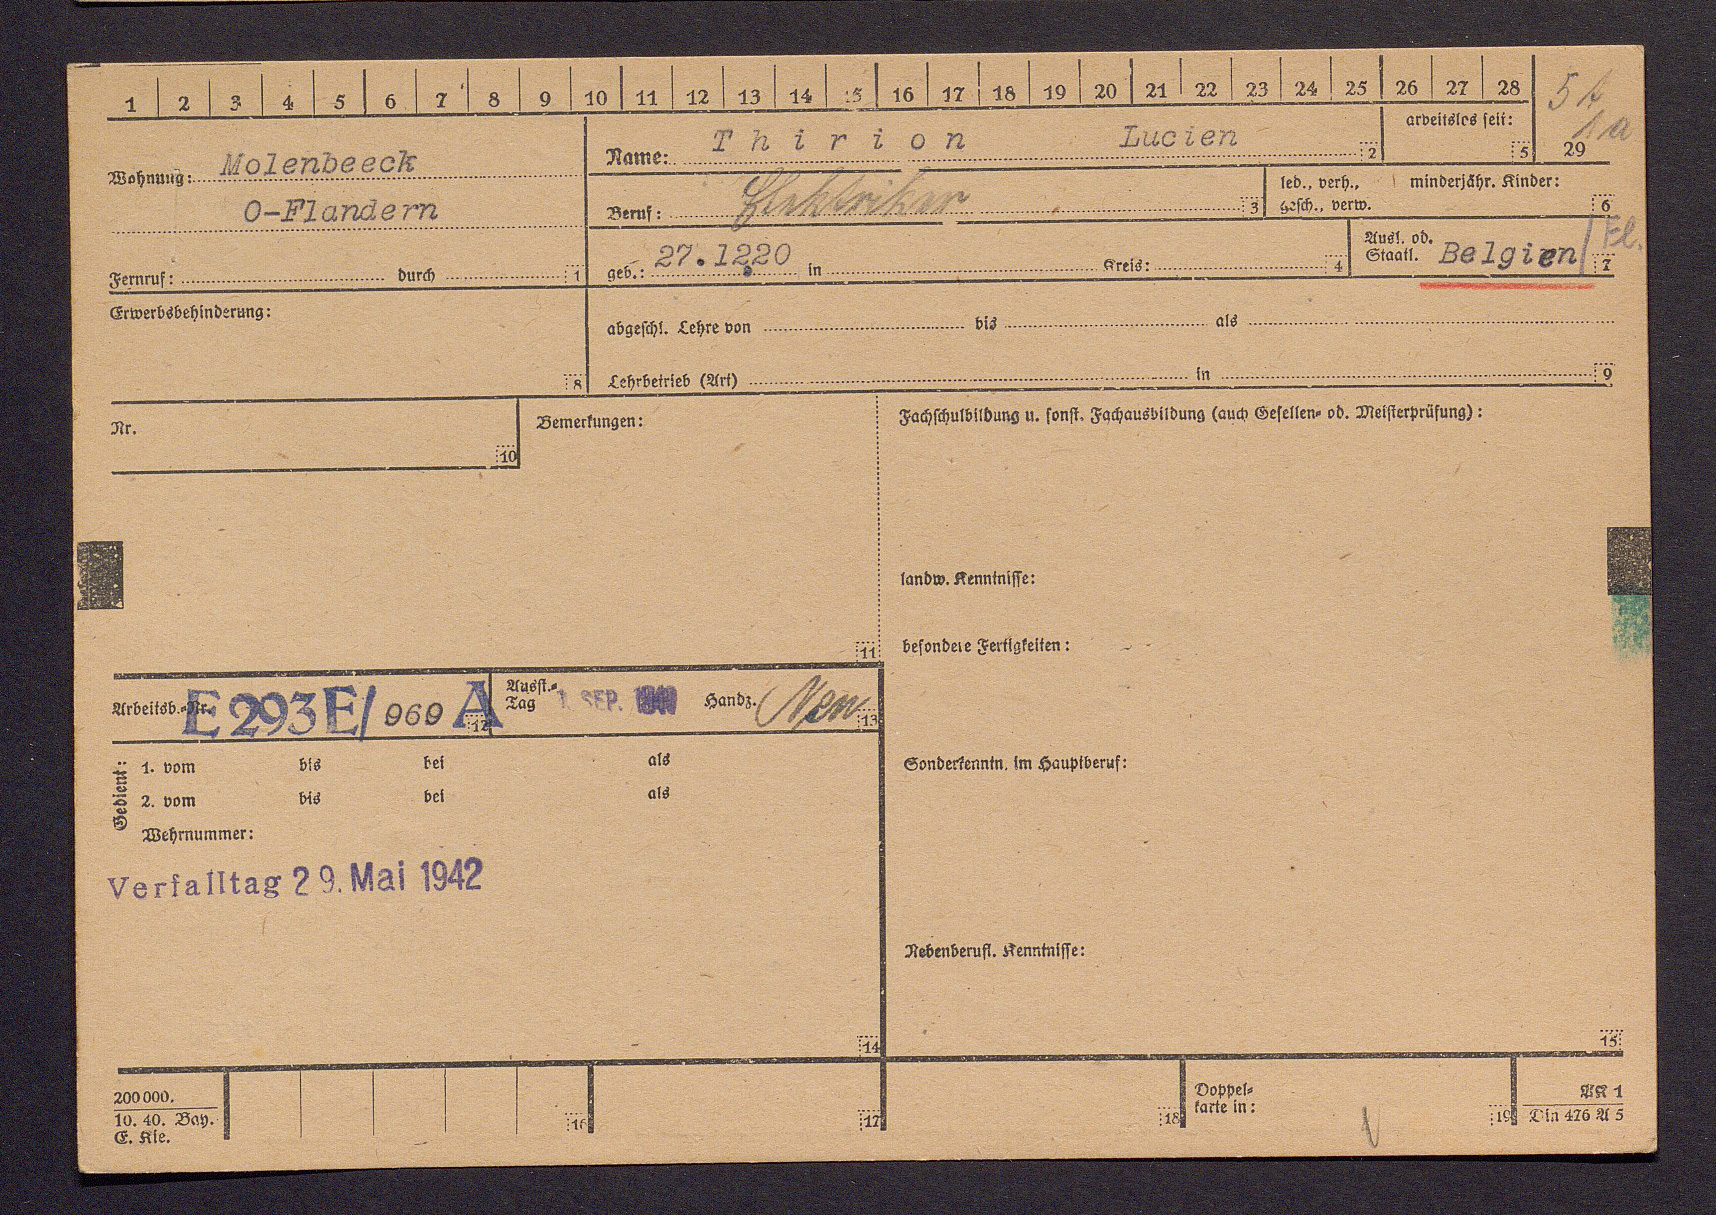 1 2 3 4 5 6 7 8 9 10 11 12 13 14 15 16 17 18 19 20 21 22 23 24 25 26 27 28
5
1a
29
arbeitslos seit:
5
Wohnung: Molenbeeck
O-Flandern
Fernruf: durch 1
Name: Thirion Lucien 2
Beruf: Elektriker 3
led., verh., minderjähr. Kinder:
gesch., verw. 6
geb.: 27.12.20 in Kreis: 4
Ausl. od.
Staatl. Belgien / Fl. 7
Erwerbsbehinderung:
8
abgeschl. Lehre von bis als
Lehrbetrieb (Art) in 9
Nr.
10
Bemerkungen:
11
Fachschulbildung u. sonst. Fachausbildung (auch Gesellen- od. Meisterprüfung):
landw. Kenntnisse:
besondere Fertigkeiten:
Sonderkenntn. im Hauptberuf:
Nebenberufl. Kenntnisse:
15
Arbeitsb.-Nr. E 293 E/ 969 A 12
Ausst.-
Tag 1. SEP. Handz. 13
Gedient:
1. vom bis bei als
2. vom bis bei als
Wehrnummer:
Verfalltag 29. Mai 1942
14
200 000.
10. 40. Bay.
E. Kle.
16
17
18
Doppel-
karte in:
19
AK 1
Din 476 A 5